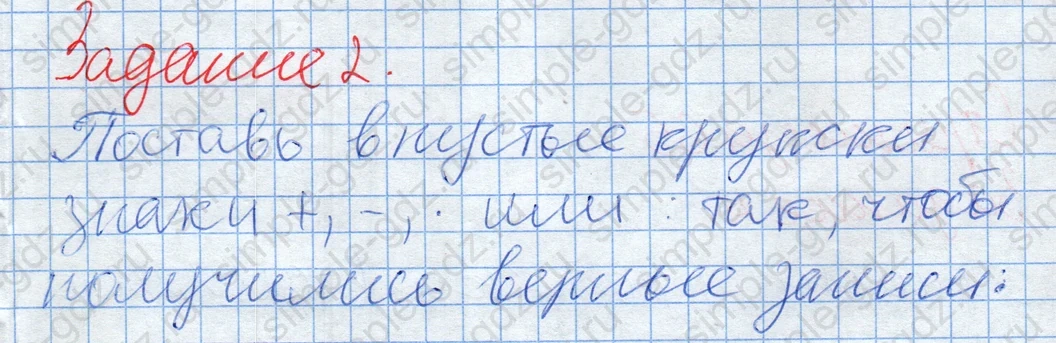 Задание 2.
Поставь в пустые кружски
знаки +, -, · или : так, чтобы
получились верные записи: